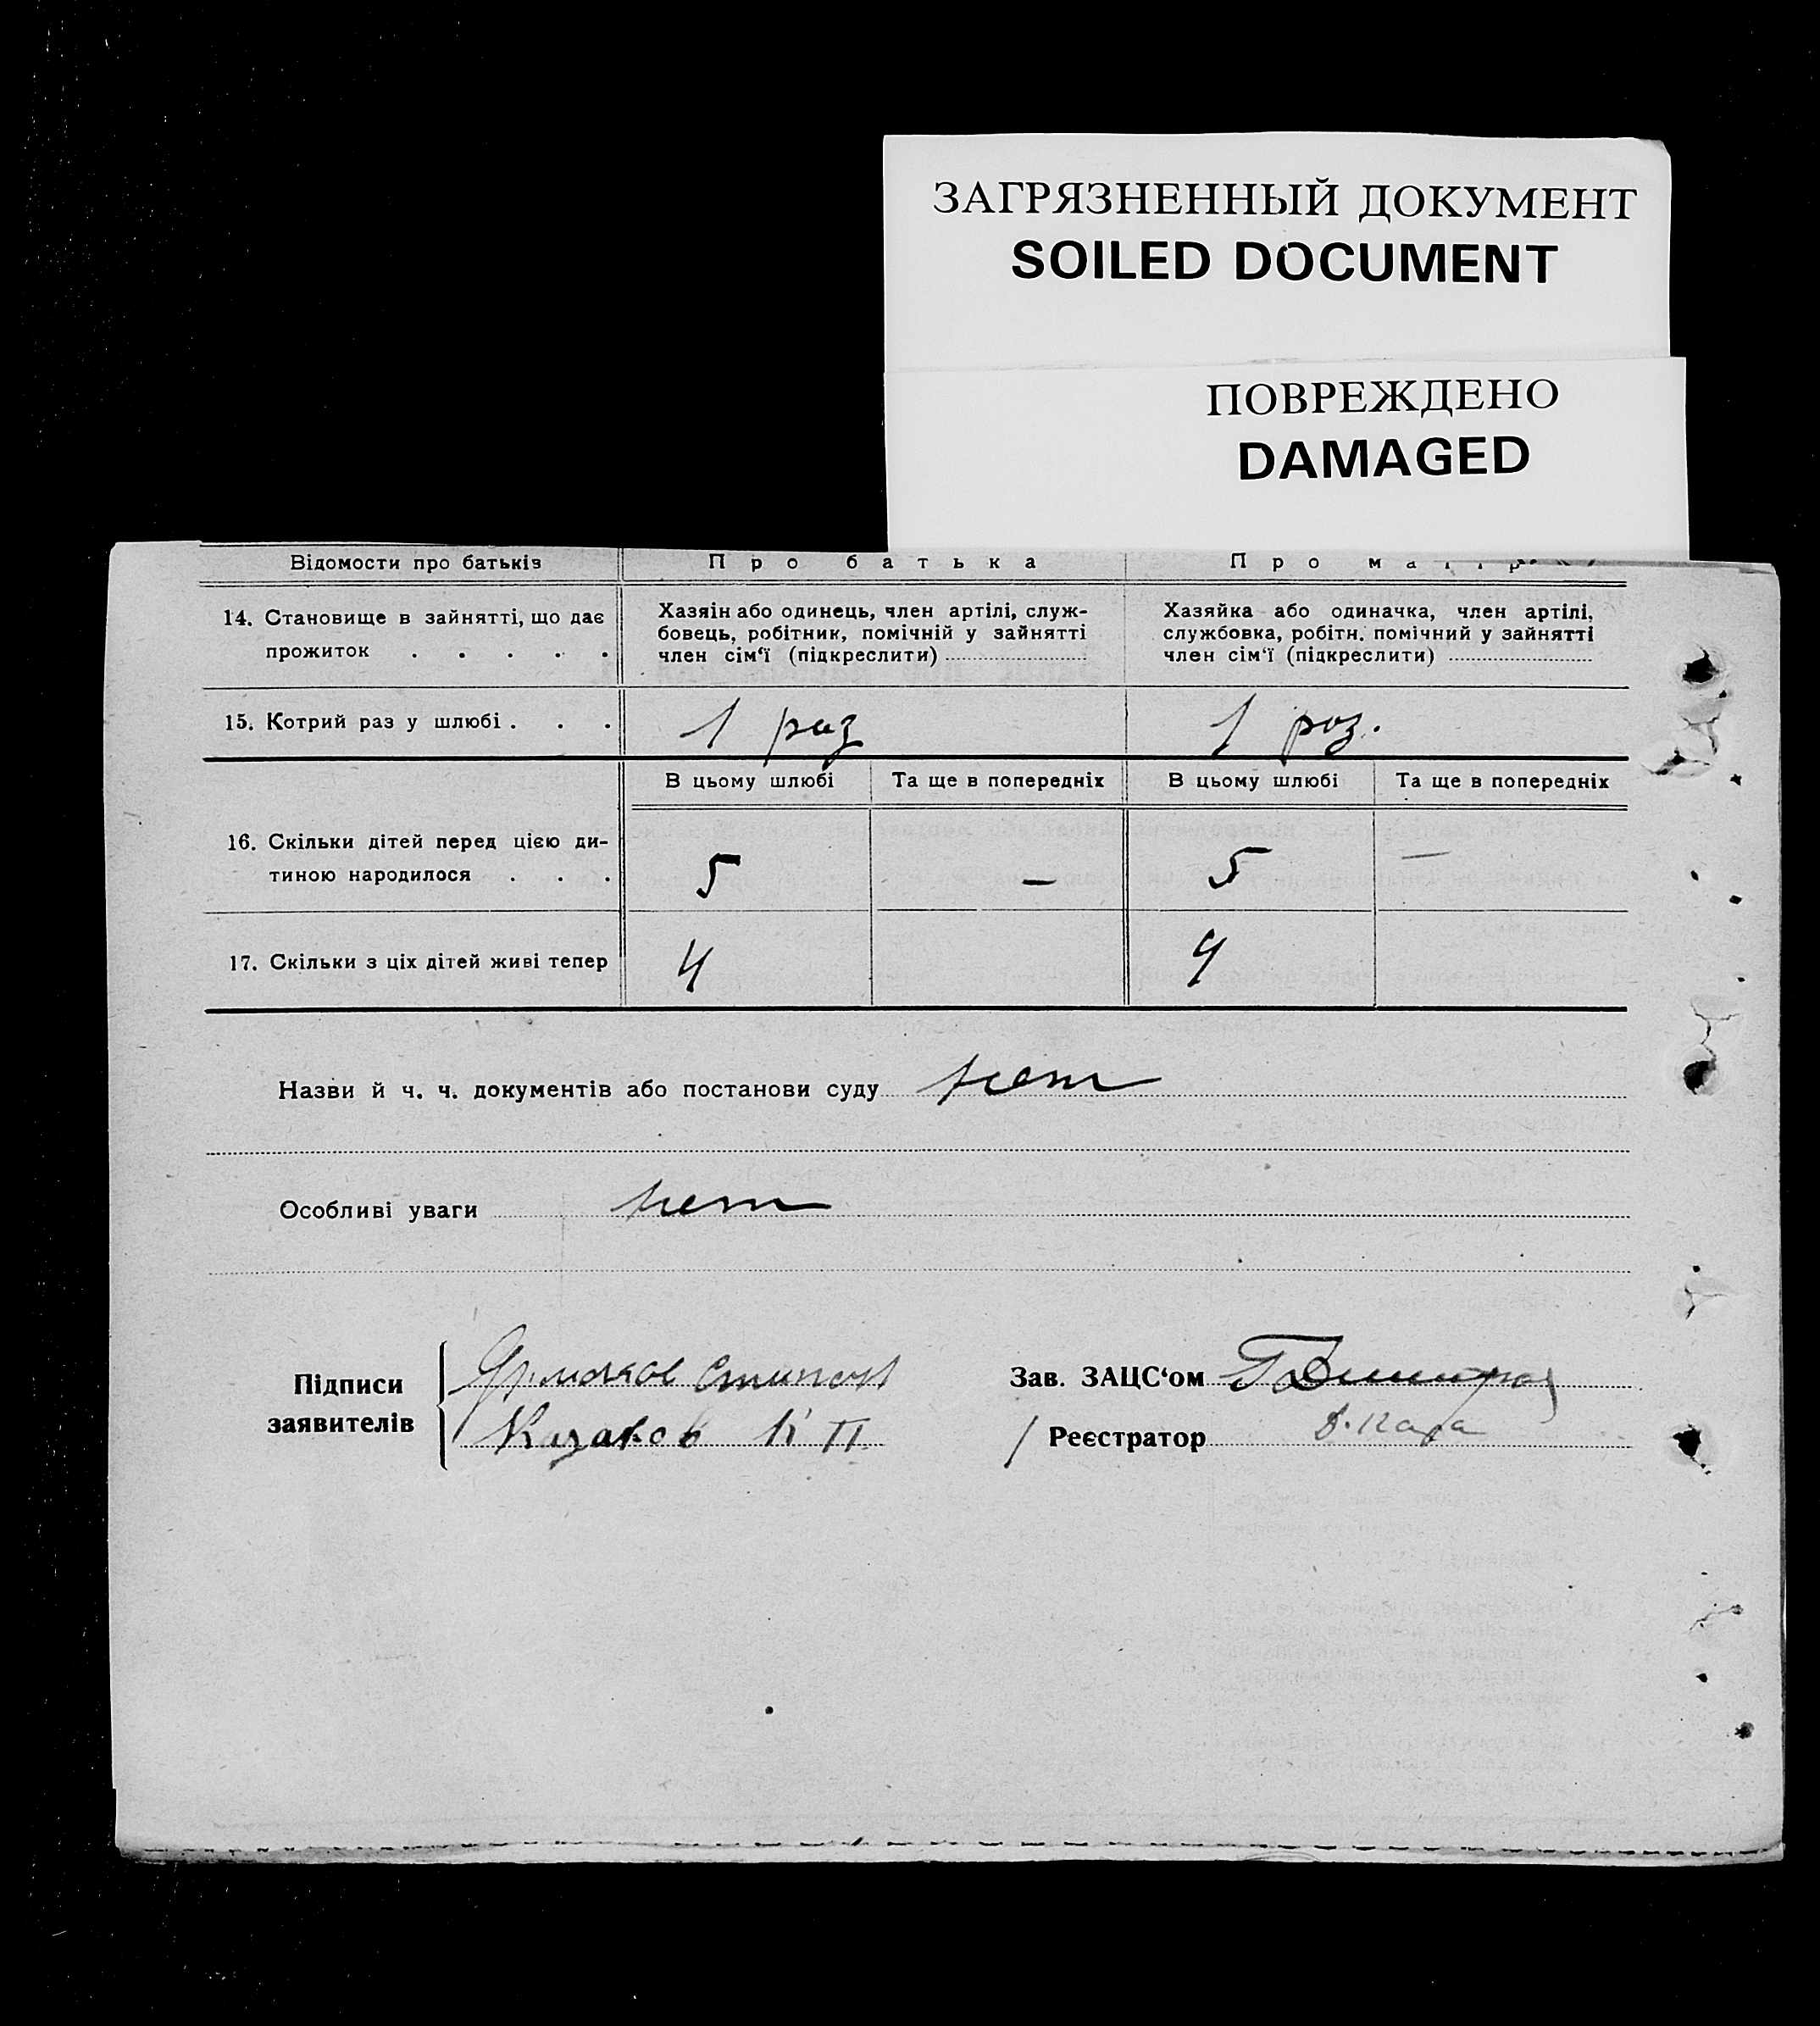 ЗАГРЯЗНЕННЫЙ ДОКУМЕНТ
SOILED DOCUMENT
ПОВРЕЖДЕНО
DAMAGED
Відомости про батьків Про батька Про
14. Становище в зайнятті, що дає прожиток . . . . .
Хазяін або одинець, член артілі, служ-
бовець, робітник, помічній у зайнятті
член сім‘ї (підкреслити)
Хазяйка або одиначка, член артілі,
службовка, робітн. помічний у зайнятті
член сім‘ї (підкреслити)
15. Котрий раз у шлюбі . . . 1 раз 1 роз.
В цьому шлюбі Та ще в попередніх В цьому шлюбі Та ще в попередніх
16. Скільки дітей перед цією ди-
тиною народилося . . . 5 — 5 —
17. Скільки з ціх дітей живі тепер 4 4
Назви й ч. ч. документів або постанови суду нет
Особливі уваги нет
Підписи
заявителів
Казаков К П
Зав. ЗАЦС‘ом
/ Реєстратор